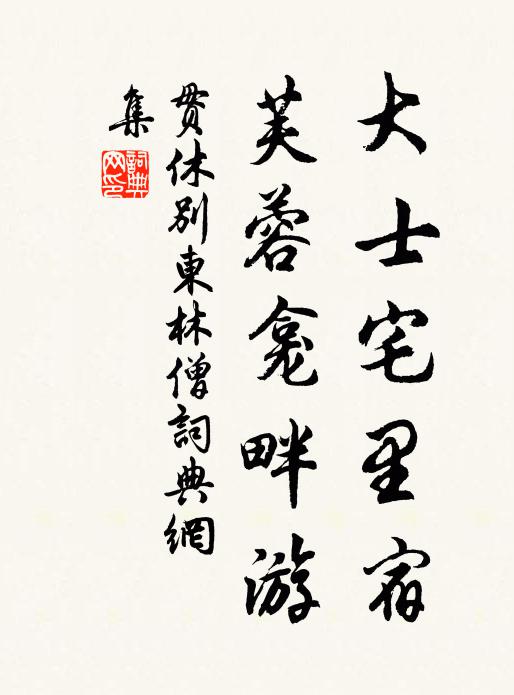 大士宅里宿
芙蓉龛畔游
贯休别东林僧詞典網
集
詞典
网印